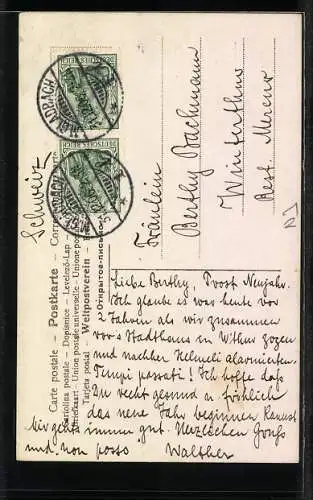 DEUTSCHES REICH
DEUTSCHES REICH
M.GLADBACH
M.GLADBACH
Schweiz
Carte postale – Postkarte – Correspondenz
Cartolina postale – Dopisnice – Levelező-Lap
Briefkaart – Union postale universelle – Unione postale
Tarjeta postal – Weltpostverein
Открытое письмо
Fräulein
Berthy Bachmann
Winterthur
Rest. Mercur
Liebe Berthy, Prost Neujahr.
Ich glaube es war heute vor
2 Jahren als wir zusammen
vor's Stadthaus in W'thur zogen
und nachher Helmeli alarmierten.
Tempi passati! Ich hoffe dass
Du recht gesund u. fröhlich
das neue Jahr beginnen kannst
Mir geht's immer gut. Herzlichen Gruss
und, non posso Walther